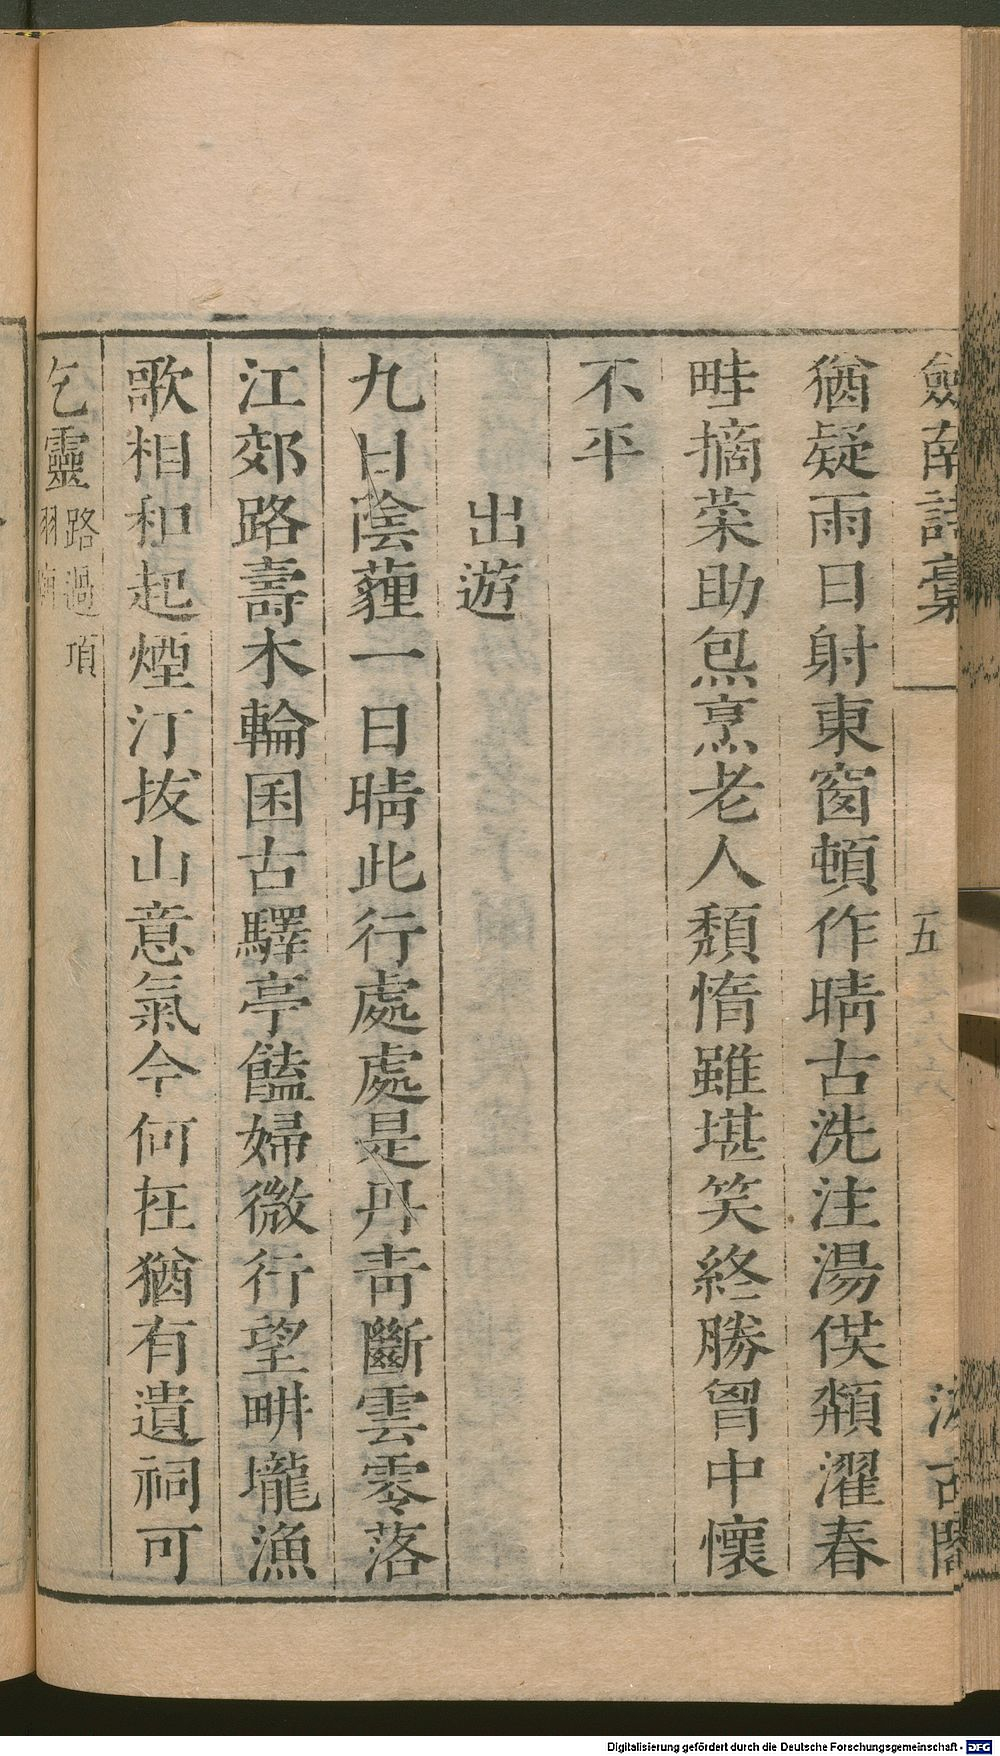 劒南詩稾
五
汲古閣
猶疑雨日射東窗頓作晴古洗注湯供頮濯春
畦摘菜助炰烹老人頹惰雖堪笑終勝胷中懷
不平
出遊
九日陰薶一日晴此行處處是丹靑斷雲零落
江郊路壽木輪囷古驛亭饁婦微行望畊壠漁
歌相和起煙汀拔山意氣今何在猶有遺祠可
乞靈
路過項
羽廟
Digitalisierung gefördert durch die Deutsche Forschungsgemeinschaft - DFG